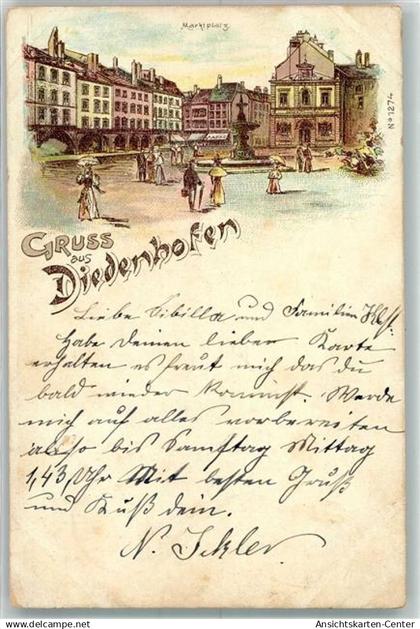 Marktplatz
No 1274
GRUSS
aus
Diedenhofen
Liebe Sibilla und Familien
Habe Deinen lieben Karte
erhalten es freut mich das du
bald wieder kommst. Werde
mich auf alles vorbereiten
also bis Samstag Mittag
1,43 Uhr Mit besten Gruß
und Kuß dein.
N. Ickler
© oldthing.de
Ansichtskarten-Center